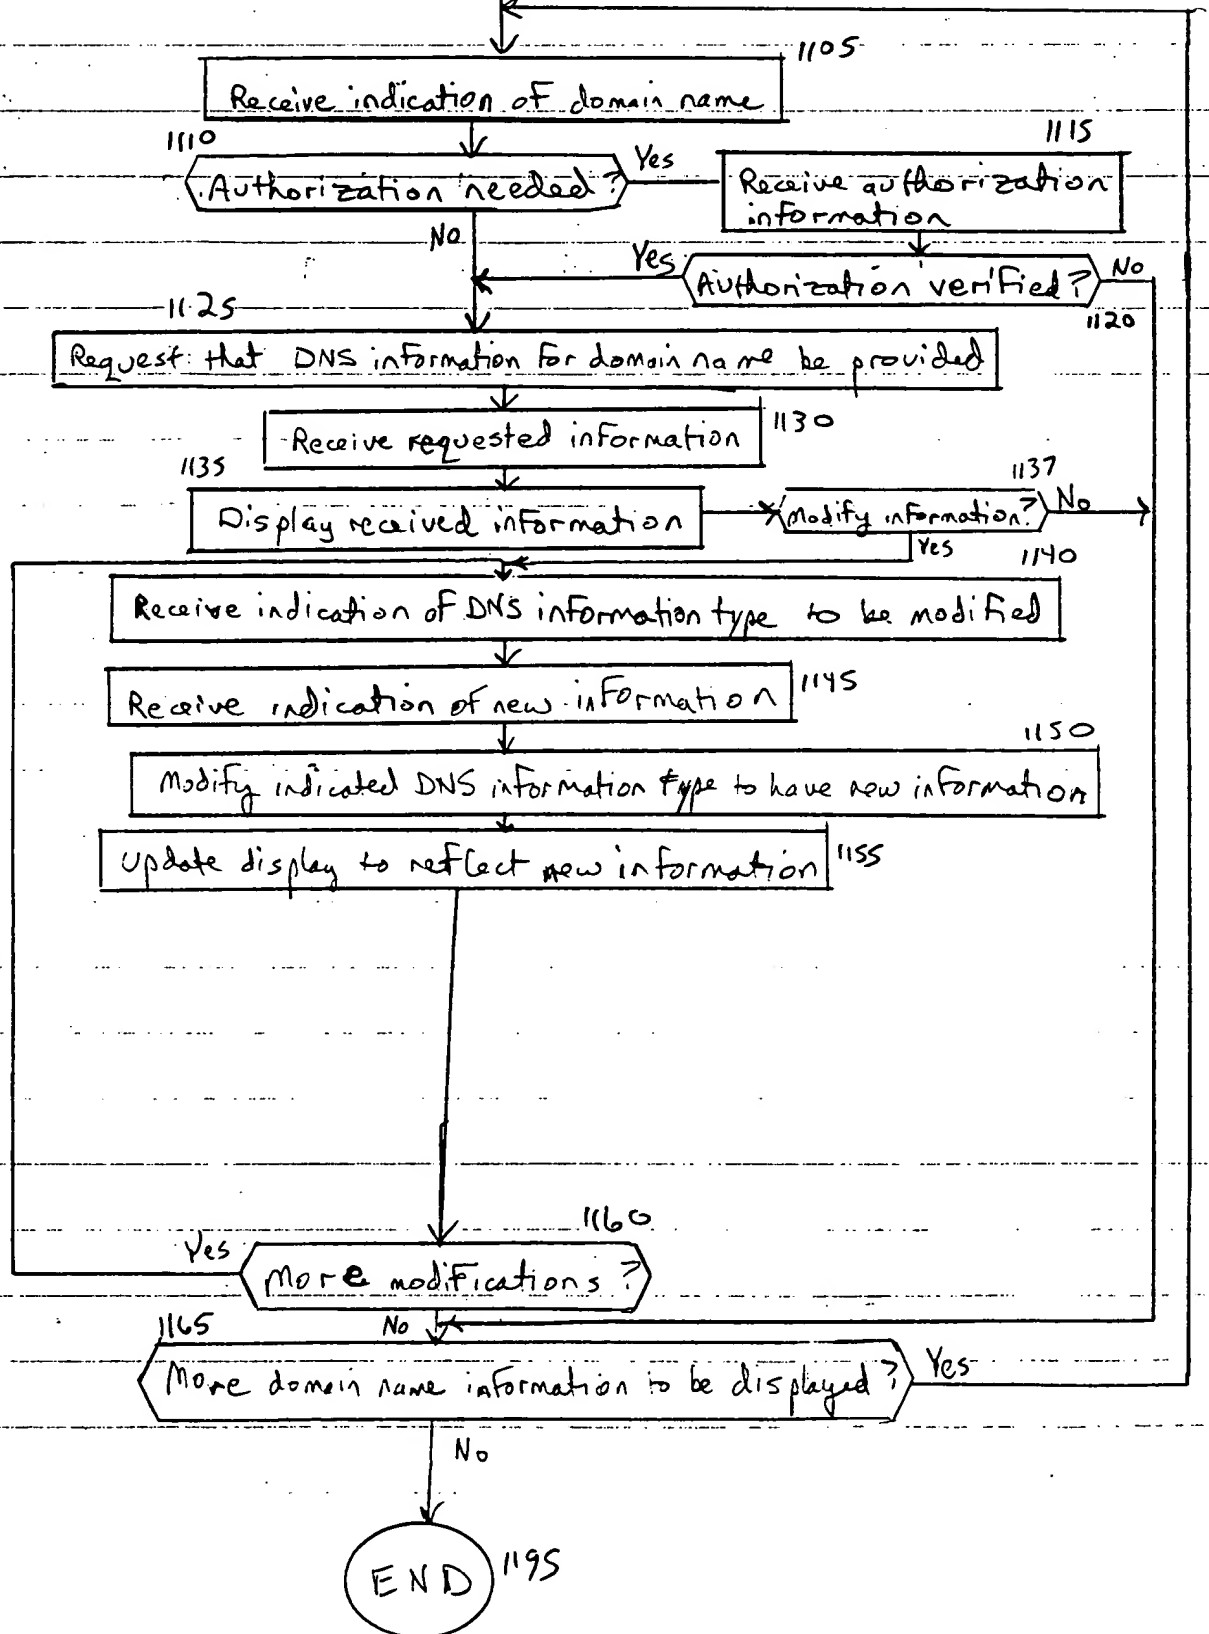 1105
Receive indication of domain name
1110
Authorization needed?
Yes
1115
Receive authorization
information
No
Yes
Authorization verified?
No
1120
1125
Request that DNS information for domain name be provided
1130
Receive requested information
1135
Display received information
1137
Modify information?
No
Yes
1140
Receive indication of DNS information type to be modified
1145
Receive indication of new information
1150
Modify indicated DNS information type to have new information
1155
Update display to reflect new information
1160
Yes
More modifications?
No
1165
More domain name information to be displayed?
Yes
No
END
1195